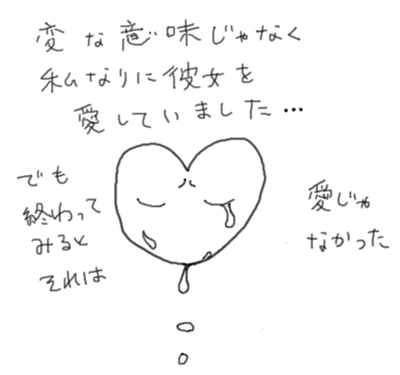 変な意味じゃなく
私なりに彼女を
愛していました…
でも
終わって
みると
それは
愛じゃ
なかった